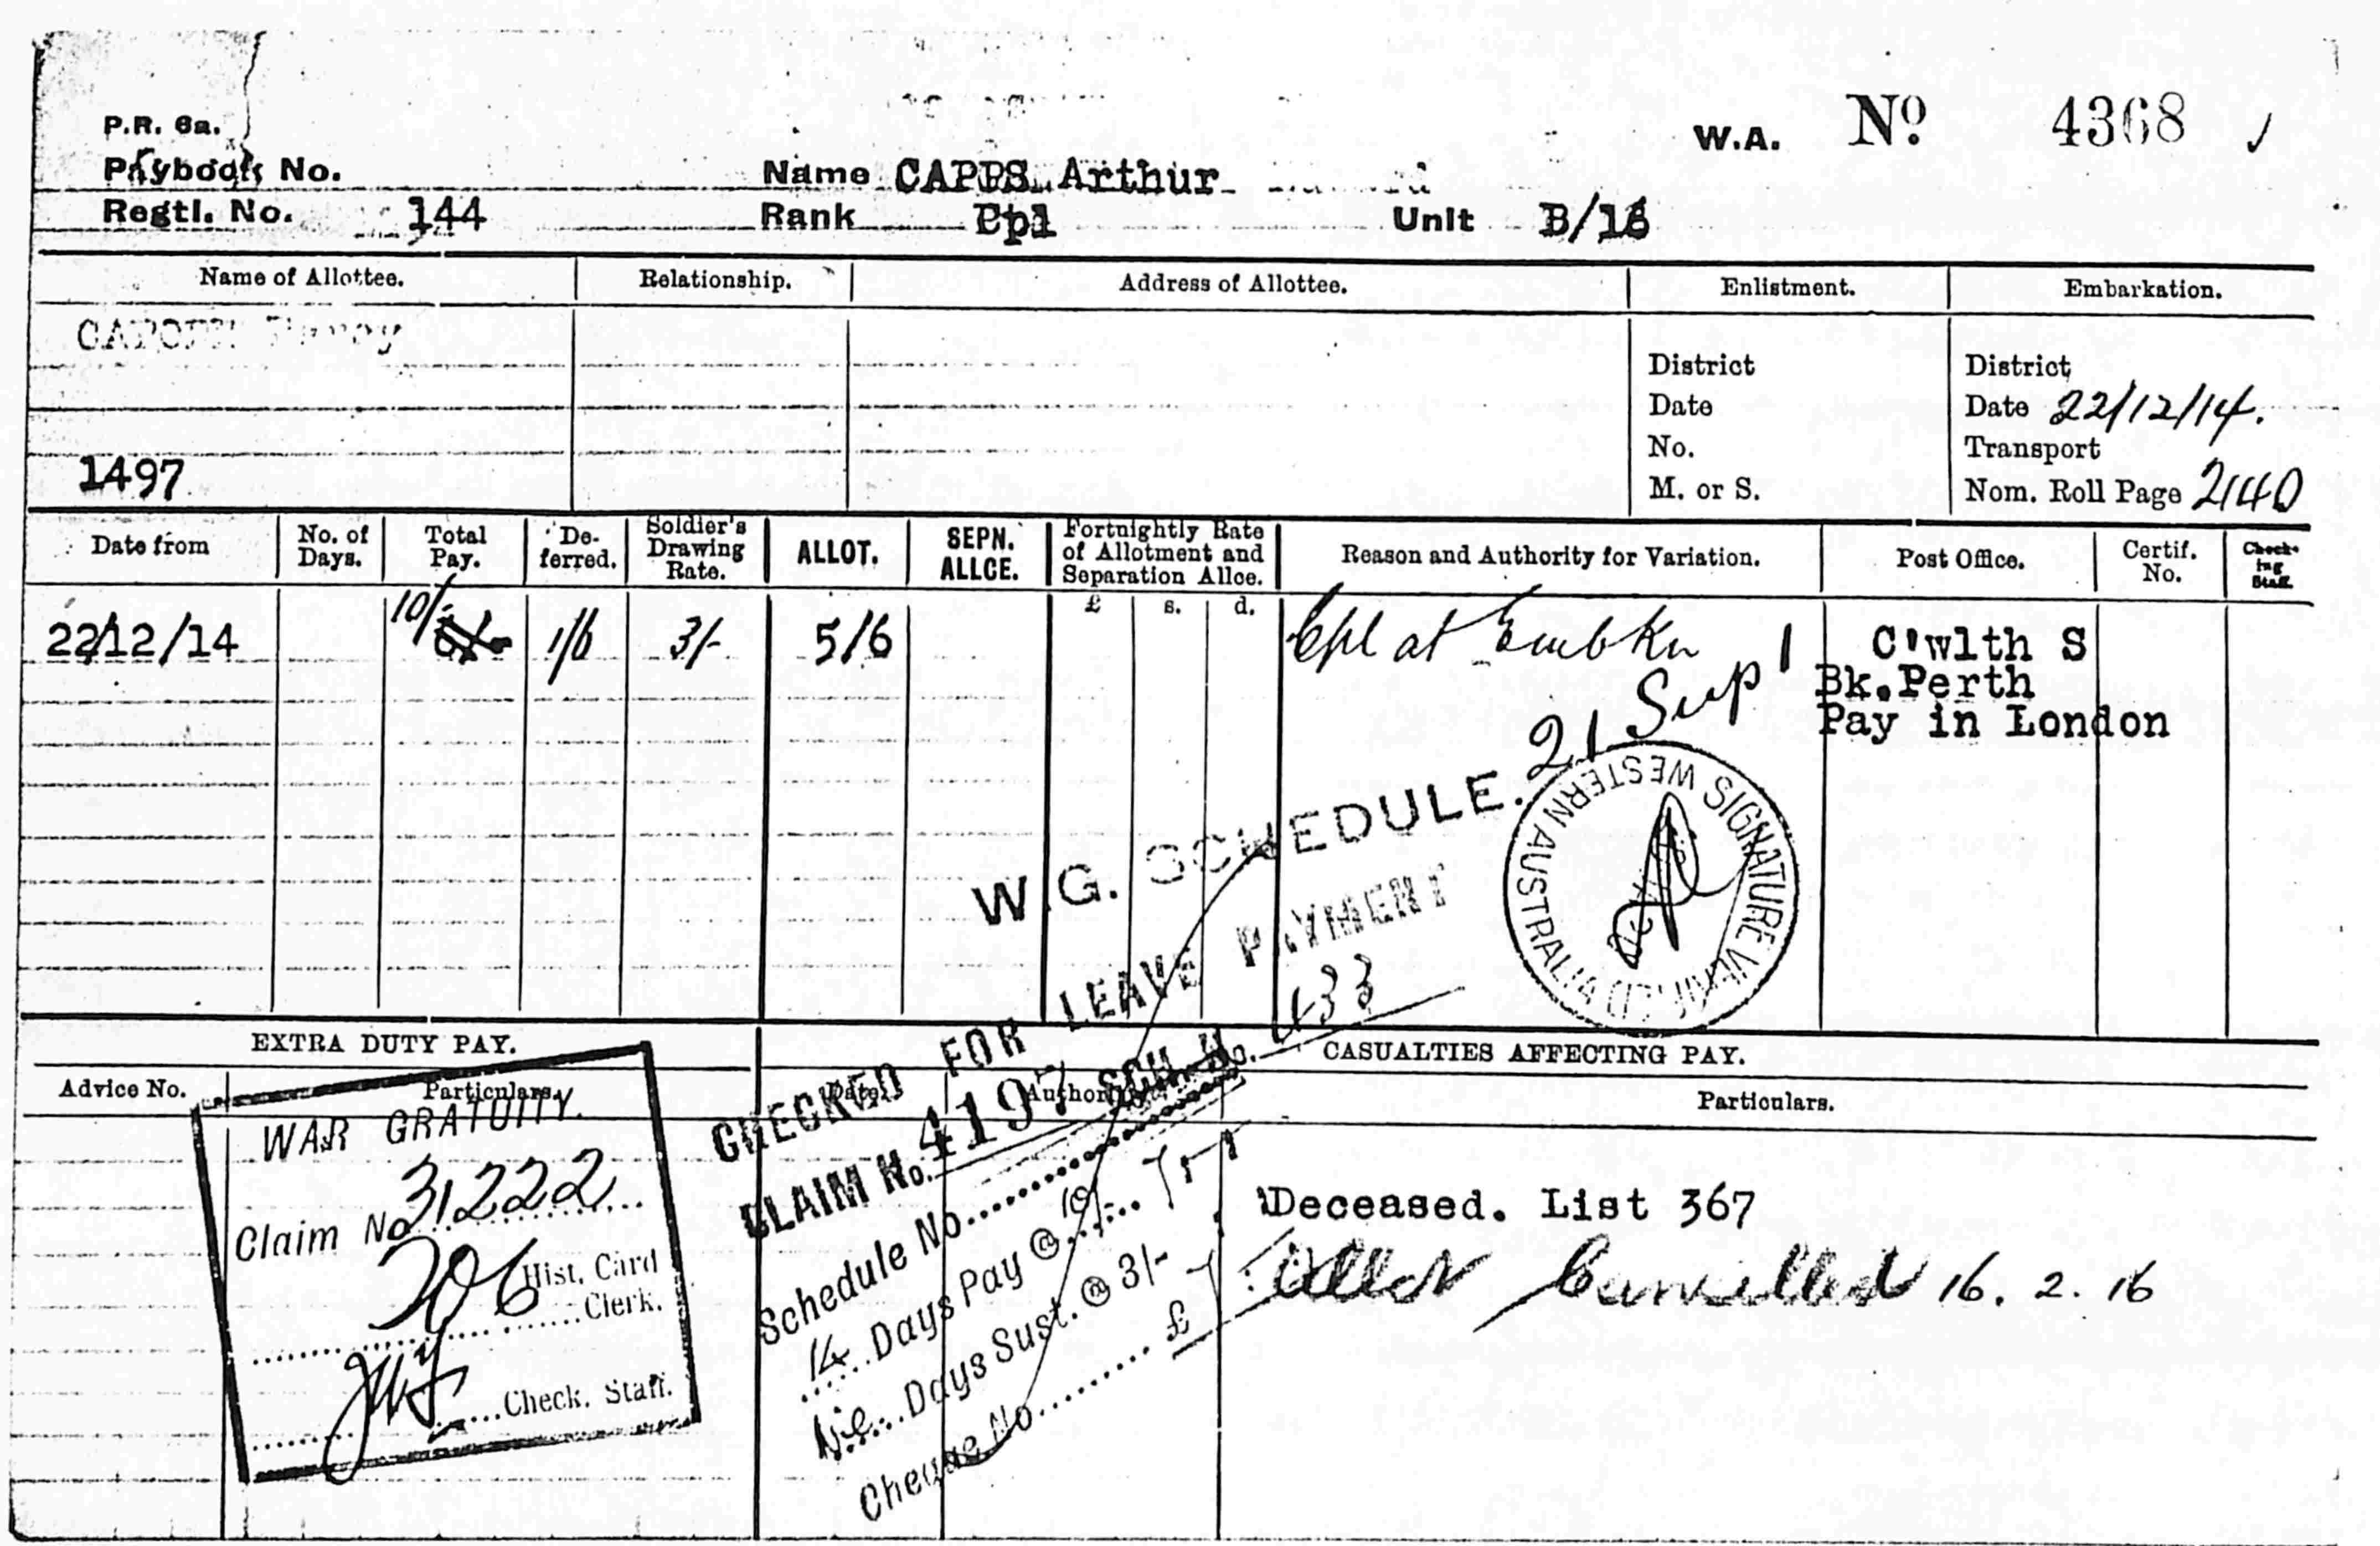 W.A. No 4368 ✓
P.R. 6a.
Paybook No.
Name CAPPS Arthur
Regtl. No. 144
Rank Cpl
Unit B/16
Name of Allottee.
Relationship.
Address of Allottee.
Enlistment.
Embarkation.
District
Date
No.
M. or S.
District
Date 22/12/14.
Transport
Nom. Roll Page 2140
1497
Date from
No. of Days.
Total Pay.
De- ferred.
Soldier's Drawing Rate.
ALLOT.
SEPN. ALLCE.
Fortnightly Rate of Allotment and Separation Allce.
£ s. d.
Reason and Authority for Variation.
Post Office.
Certif. No.
Check- ing Staff.
22/12/14
10/-
1/6
3/-
5/6
Cpl at Embkn
C'wlth S
Bk.Perth
Pay in London
21 Sup 1
W.G. SCHEDULE.
SIGNATURE VERIFIED WESTERN AUSTRALIA
CHECKED FOR LEAVE PAYMENT
CLAIM No. 4197 SCH. No. 433
Schedule No.
14 Days Pay @ 10/- 7
Nil Days Sust. @ 3/-
£ 7
Cheque No.
EXTRA DUTY PAY.
Advice No.
Particulars.
WAR GRATUITY.
Claim No 31222
206 Hist. Card Clerk.
Check. Staff.
CASUALTIES AFFECTING PAY.
Date
Authority
Particulars.
Deceased. List 367
Allot Cancelled 16. 2. 16